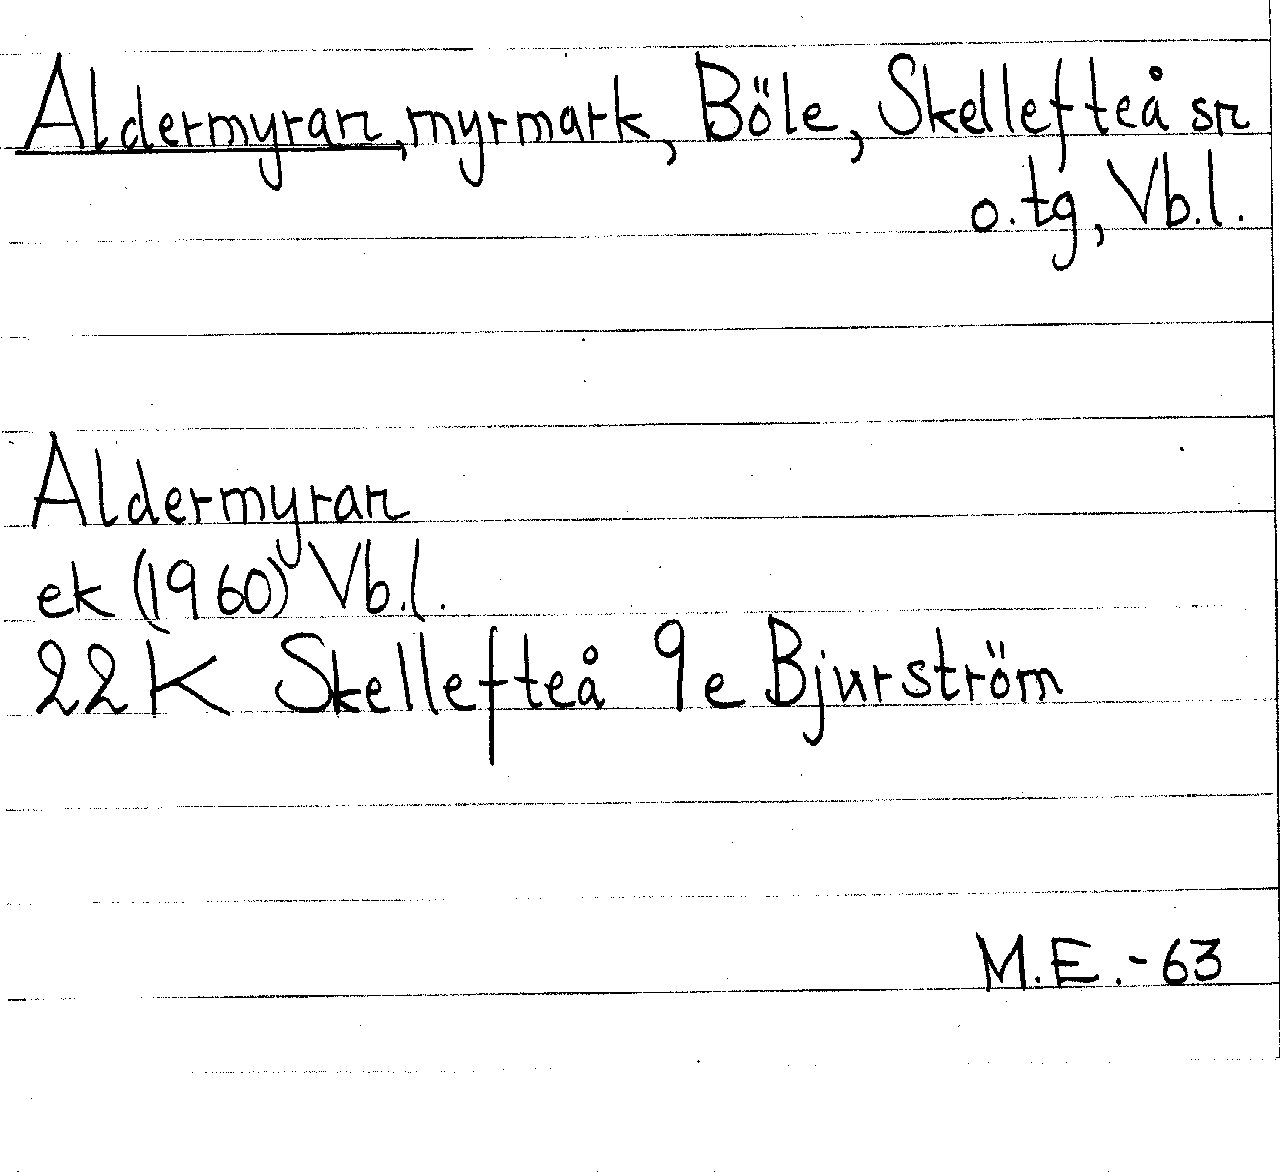 Aldermyran, myrmark, Böle, Skellefteå sn
o. tg, Vb.l.
Aldermyran
ek (1960) Vb.l.
22K Skellefteå 9e Bjurström
M.E.-63